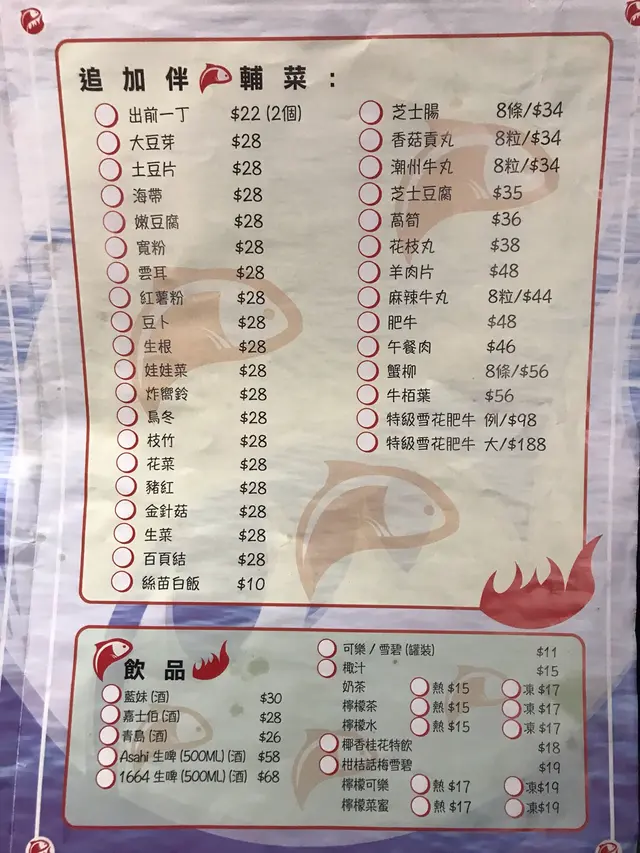 追加伴輔菜：
出前一丁 $22 (2個)
大豆芽 $28
土豆片 $28
海帶 $28
嫩豆腐 $28
寬粉 $28
雲耳 $28
紅薯粉 $28
豆卜 $28
生根 $28
娃娃菜 $28
炸響鈴 $28
烏冬 $28
枝竹 $28
花菜 $28
豬紅 $28
金針菇 $28
生菜 $28
百頁結 $28
絲苗白飯 $10
芝士腸 8條/$34
香菇貢丸 8粒/$34
潮州牛丸 8粒/$34
芝士豆腐 $35
萵筍 $36
花枝丸 $38
羊肉片 $48
麻辣牛丸 8粒/$44
肥牛 $48
午餐肉 $46
蟹柳 8條/$56
牛栢葉 $56
特級雪花肥牛 例/$98
特級雪花肥牛 大/$188
飲品
藍妹 (酒) $30
嘉士伯 (酒) $28
青島 (酒) $26
Asahi 生啤 (500ML) (酒) $58
1664 生啤 (500ML) (酒) $68
可樂 / 雪碧 (罐裝) $11
椰汁 $15
奶茶 熱 $15 凍 $17
檸檬茶 熱 $15 凍 $17
檸檬水 熱 $15 凍 $17
椰香桂花特飲 $18
柑桔話梅雪碧 $19
檸檬可樂 熱 $17 凍$19
檸檬菜蜜 熱 $17 凍$19